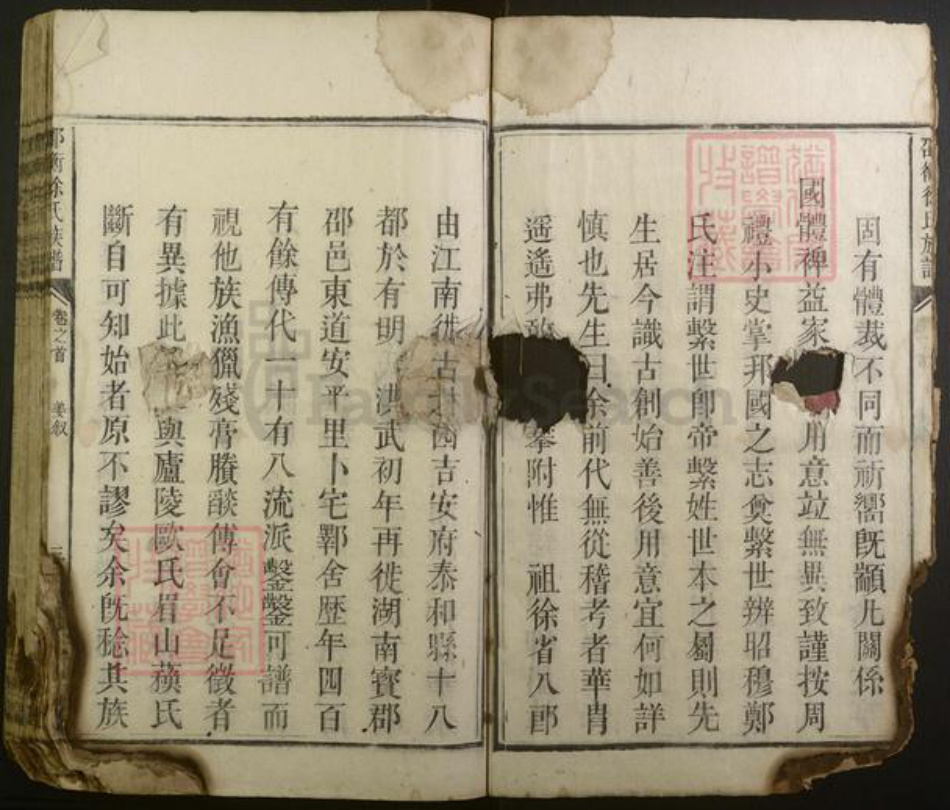 固有體裁不同而祈嚮旣顓凡關係
國體裨益家用意竝無異致謹按周
禮小史掌邦國之志奠繫世辨昭穆鄭
氏注謂繫世卽帝繫姓世本之屬則先
生居今識古創始善後用意宜何如詳
慎也先生曰余前代無從稽考者華胄
遥遥弗敢攀附惟 祖徐省八郎
由江南徙古吉安府泰和縣十八
都於有明洪武初年再徙湖南寶郡
邵邑東道安平里卜宅鄿舍歷年四百
有餘傳代一十有八流派鑿鑿可譜而
視他族漁獵殘膏賸燄傅會不足徵者
有異據此與廬陵歐氏眉山蘇氏
斷自可知始者原不謬矣余旣稔其族
邵衡徐氏族譜
卷之首
姜叙
FamilySearch